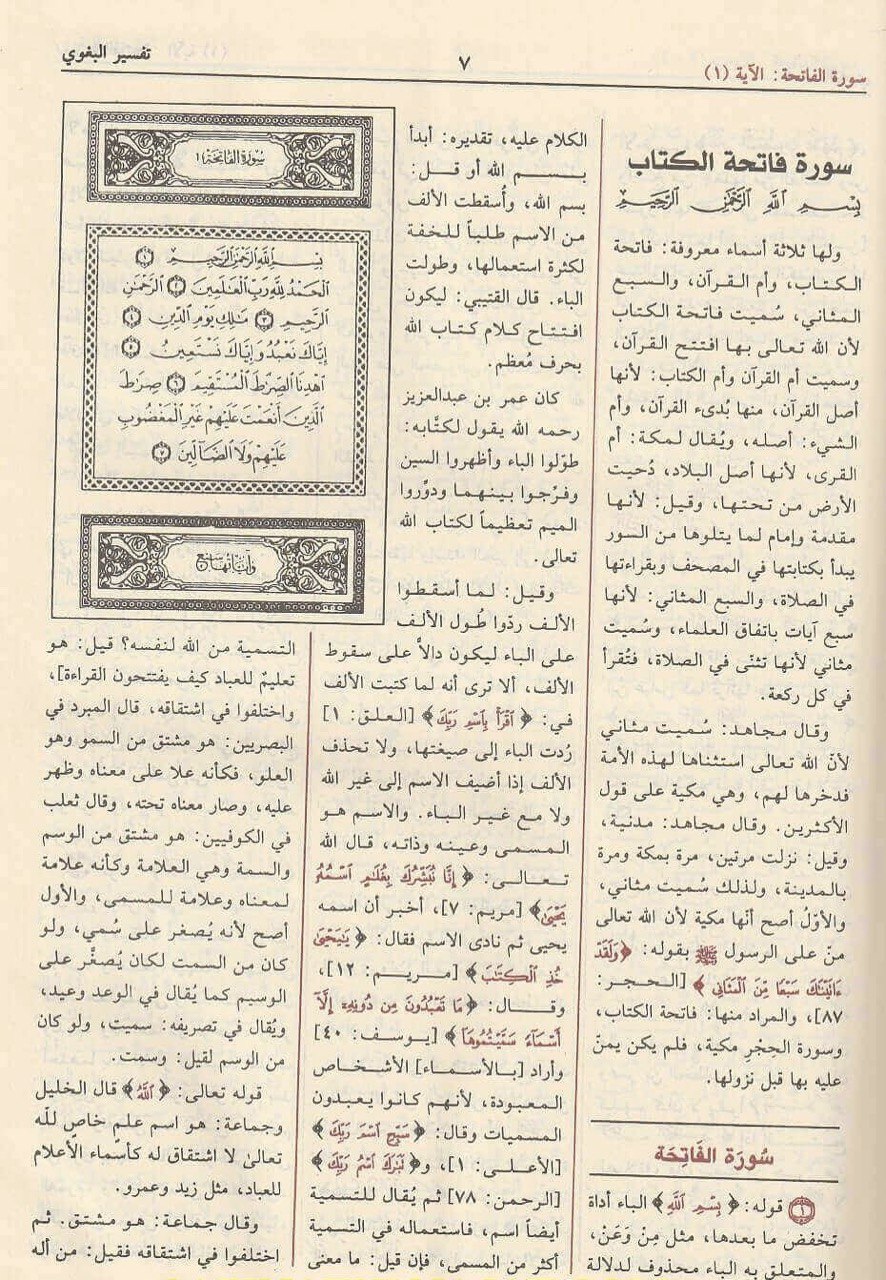 سورة الفاتحة: الآية (١)
٧
تفسير البغوي
سورة فاتحة الكتاب
بِسْمِ اللَّهِ الرَّحْمَٰنِ الرَّحِيمِ
ولها ثلاثة أسماء معروفة: فاتحة
الكتاب، وأم القرآن، والسبع
المثاني، سُميت فاتحة الكتاب
لأن الله تعالى بها افتتح القرآن،
وسميت أم القرآن وأم الكتاب: لأنها
أصل القرآن، منها بُدىء القرآن، وأم
الشيء: أصله، ويُقال لمكة: أم
القرى، لأنها أصل البلاد، دُحيت
الأرض من تحتها، وقيل: لأنها
مقدمة وإمام لما يتلوها من السور
يبدأ بكتابتها في المصحف وبقراءتها
في الصلاة، والسبع المثاني: لأنها
سبع آيات باتفاق العلماء، وسُميت
مثاني لأنها تثنّى في الصلاة، فتُقرأ
في كل ركعة.
وقال مجاهد: سُميت مثاني
لأنّ الله تعالى استثناها لهذه الأمة
فدخرها لهم، وهي مكية على قول
الأكثرين. وقال مجاهد: مدنية،
وقيل: نزلت مرتين، مرة بمكة ومرة
بالمدينة، ولذلك سُميت مثاني،
والأوّلُ أصح أنّها مكية لأن الله تعالى
منّ على الرسول ﷺ بقوله: ﴿وَلَقَدْ
ءَاتَيْنَٰكَ سَبْعًا مِّنَ ٱلْمَثَانِي﴾ [الحجر:
٨٧]، والمراد منها: فاتحة الكتاب،
وسورة الحِجْرِ مكية، فلم يكن يمنّ
عليه بها قبل نزولها.
سُورَة الفَاتِحَة
١ قوله: ﴿بِسْمِ اللَّهِ﴾ الباء أداة
تخفض ما بعدها، مثل مِنْ وَعَنْ،
والمتعلق به الباء محذوف لدلالة
الكلام عليه، تقديره: أبدأ
بسم الله أو قل:
بسم الله، وأُسقطت الألف
من الاسم طلباً للخفة
لكثرة استعمالها، وطولت
الباء. قال القتيبي: ليكون
افتتاح كلام كتاب الله
بحرف مُعظم.
كان عمر بن عبدالعزيز
رحمه الله يقول لكتَّابه:
طوّلوا الباء وأظهروا السين
وفرّجوا بينهما ودوِّروا
الميم تعظيماً لكتاب الله
تعالى.
وقيل: لما أسقطوا
الألف ردّوا طُول الألف
على الباء ليكون دالاً على سقوط
الألف، ألا ترى أنه لما كتبت الألف
في: ﴿ٱقْرَأْ بِٱسْمِ رَبِّكَ﴾ [العلق: ١]
رُدت الباء إلى صيغتها، ولا تحذف
الألف إذا أضيف الاسم إلى غير الله
ولا مع غير الباء. والاسم هو
المسمى وعينه وذاته، قال الله
تعالى: ﴿إِنَّا نُبَشِّرُكَ بِغُلَٰمٍ ٱسْمُهُۥ
يَحْيَىٰ﴾ [مريم: ٧]، أخبر أن اسمه
يحيى ثم نادى الاسم فقال: ﴿يَٰيَحْيَىٰ
خُذِ ٱلْكِتَٰبَ﴾ [مريم: ١٢]،
وقال: ﴿مَا تَعْبُدُونَ مِن دُونِهِۦٓ إِلَّآ
أَسْمَآءً سَمَّيْتُمُوهَآ﴾ [يوسف: ٤٠]
وأراد [بالأسماء] الأشخاص
المعبودة، لأنهم كانوا يعبدون
المسميات وقال: ﴿سَبِّحِ ٱسْمَ رَبِّكَ﴾
[الأعلى: ١]، و﴿تَبَٰرَكَ ٱسْمُ رَبِّكَ﴾
[الرحمن: ٧٨] ثم يُقال للتسمية
أيضاً اسم، فاستعماله في التسمية
أكثر من المسمى، فإن قيل: ما معنى
سُورَةُ الفَاتِحَةِ ١
بِسْمِ ٱللَّهِ ٱلرَّحْمَٰنِ ٱلرَّحِيمِ ١
ٱلْحَمْدُ لِلَّهِ رَبِّ ٱلْعَٰلَمِينَ ٢ ٱلرَّحْمَٰنِ
ٱلرَّحِيمِ ٣ مَٰلِكِ يَوْمِ ٱلدِّينِ ٤
إِيَّاكَ نَعْبُدُ وَإِيَّاكَ نَسْتَعِينُ ٥
ٱهْدِنَا ٱلصِّرَٰطَ ٱلْمُسْتَقِيمَ ٦ صِرَٰطَ
ٱلَّذِينَ أَنْعَمْتَ عَلَيْهِمْ غَيْرِ ٱلْمَغْضُوبِ
عَلَيْهِمْ وَلَا ٱلضَّآلِّينَ ٧
وَآيَاتُهَا سَبْعٌ
التسمية من الله لنفسه؟ قيل: هو
تعليمٌ للعباد كيف يفتتحون القراءة]،
واختلفوا في اشتقاقه، قال المبرد في
البصريين: هو مشتق من السمو وهو
العلو، فكأنه علا على معناه وظهر
عليه، وصار معناه تحته، وقال ثعلب
في الكوفيين: هو مشتق من الوسم
والسمة وهي العلامة وكأنه علامة
لمعناه وعلامة للمسمى، والأول
أصح لأنه يُصغر على سُمي، ولو
كان من السمت لكان يُصغَّر على
الوسيم كما يُقال في الوعد وعيد،
ويُقال في تصريفه: سميت، ولو كان
من الوسم لقيل: وسمت.
قوله تعالى: ﴿اللَّهِ﴾ قال الخليل
وجماعة: هو اسم علمٍ خاصٍ للّه
تعالىٰ لا اشتقاق له كأسماء الأعلام
للعباد، مثل زيد وعمرو.
وقال جماعة: هو مشتق. ثم
اختلفوا في اشتقاقه فقيل: من أله